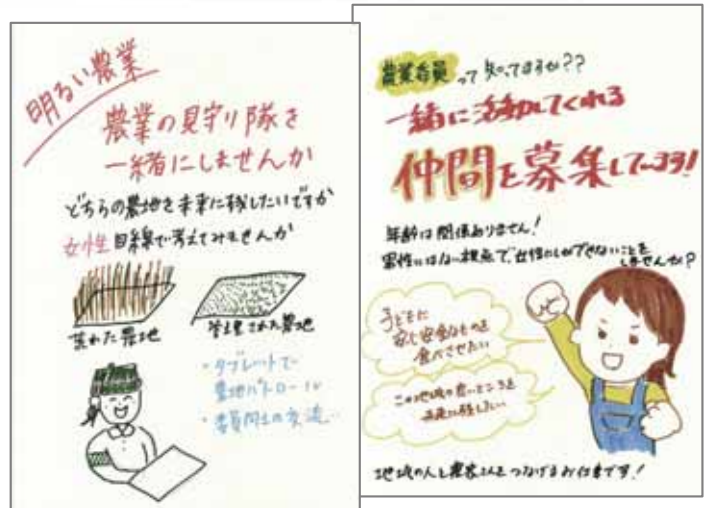 明るい農業
農業の見守り隊を
一緒にしませんか
どちらの農地を未来に残したいですか
女性目線で考えてみませんか
荒れた農地
管理された農地
・タブレットで
農地パトロール
・委員同士の交流
農業委員って知ってますか??
一緒に活動してくれる
仲間を募集してます!
年齢は関係ありません!
男性にはない視点で、女性にしかできないことを
しませんか?
子どもに
安心安全なものを
食べさせたい
この地域の良いところを
未来に残したい
地域の人と農家さんをつなげるお仕事です!